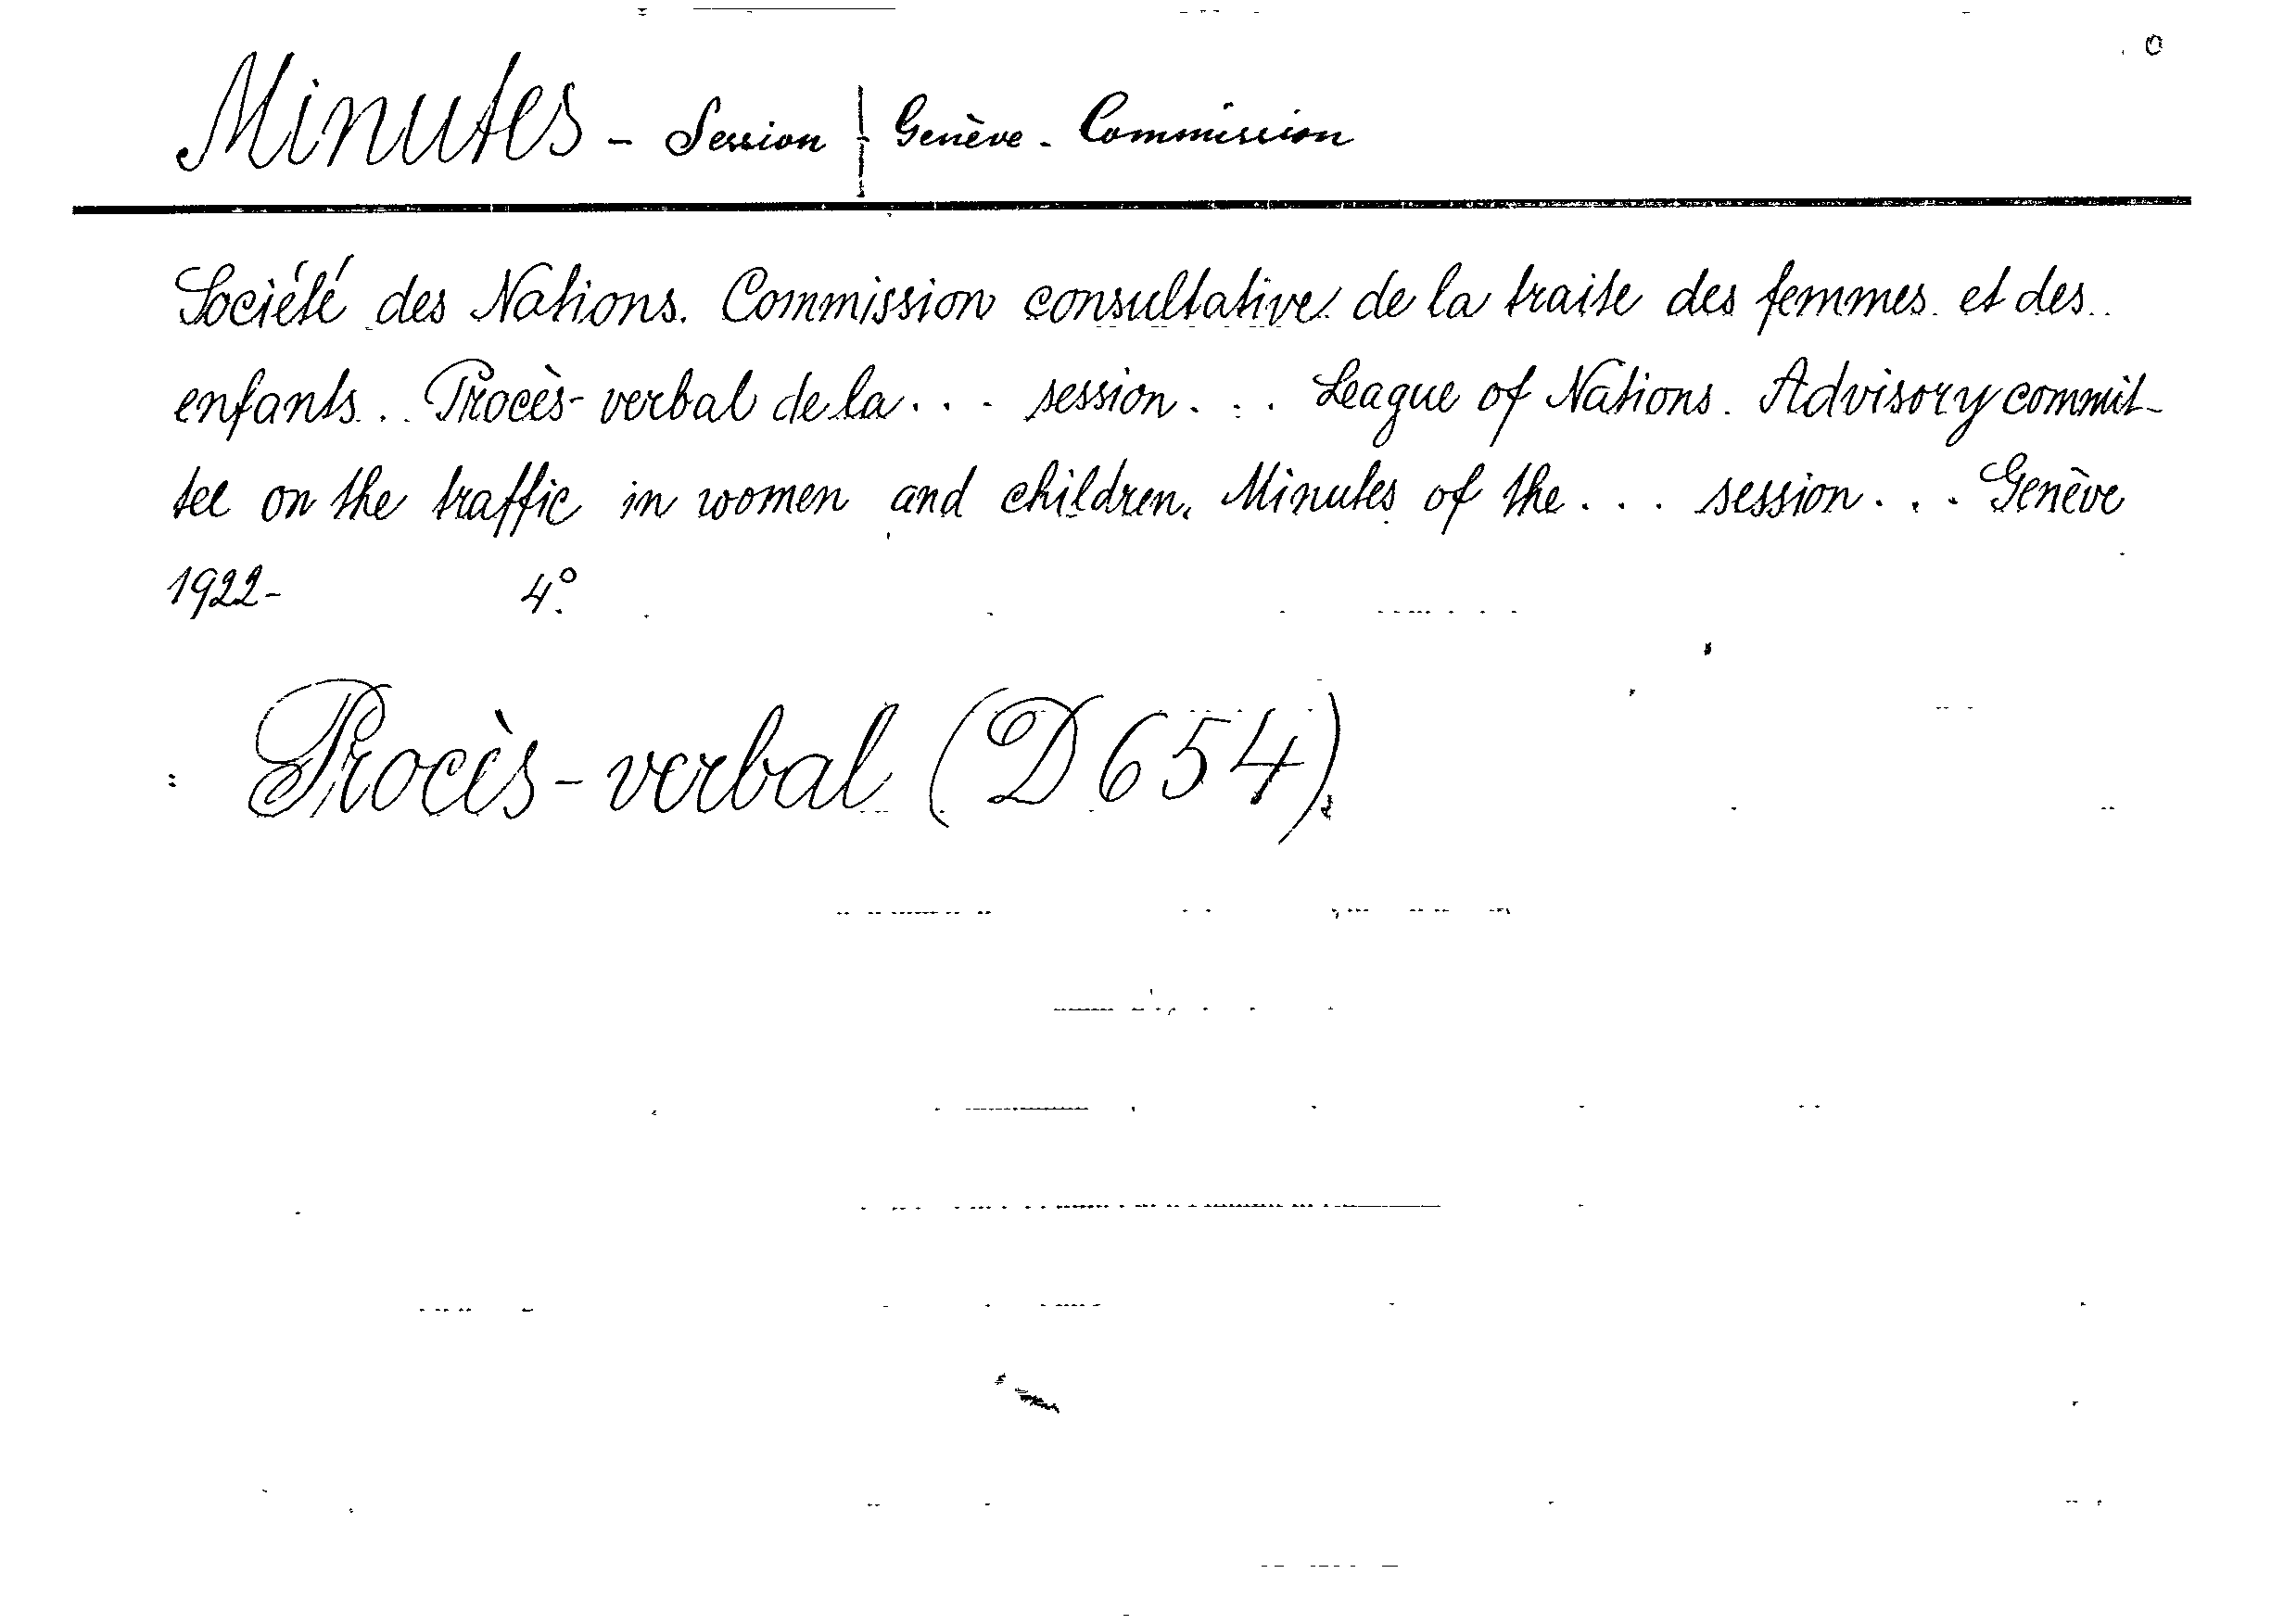 Minutes - Session | Genève - Commission
Société des Nations. Commission consultative de la traite des femmes et des
enfants. Procès-verbal de la . . . session . . . League of Nations. Advisory commit-
tee on the traffic in women and children. Minutes of the . . . session . . . Genève
1922- 4°.
Procès-verbal (D 654).